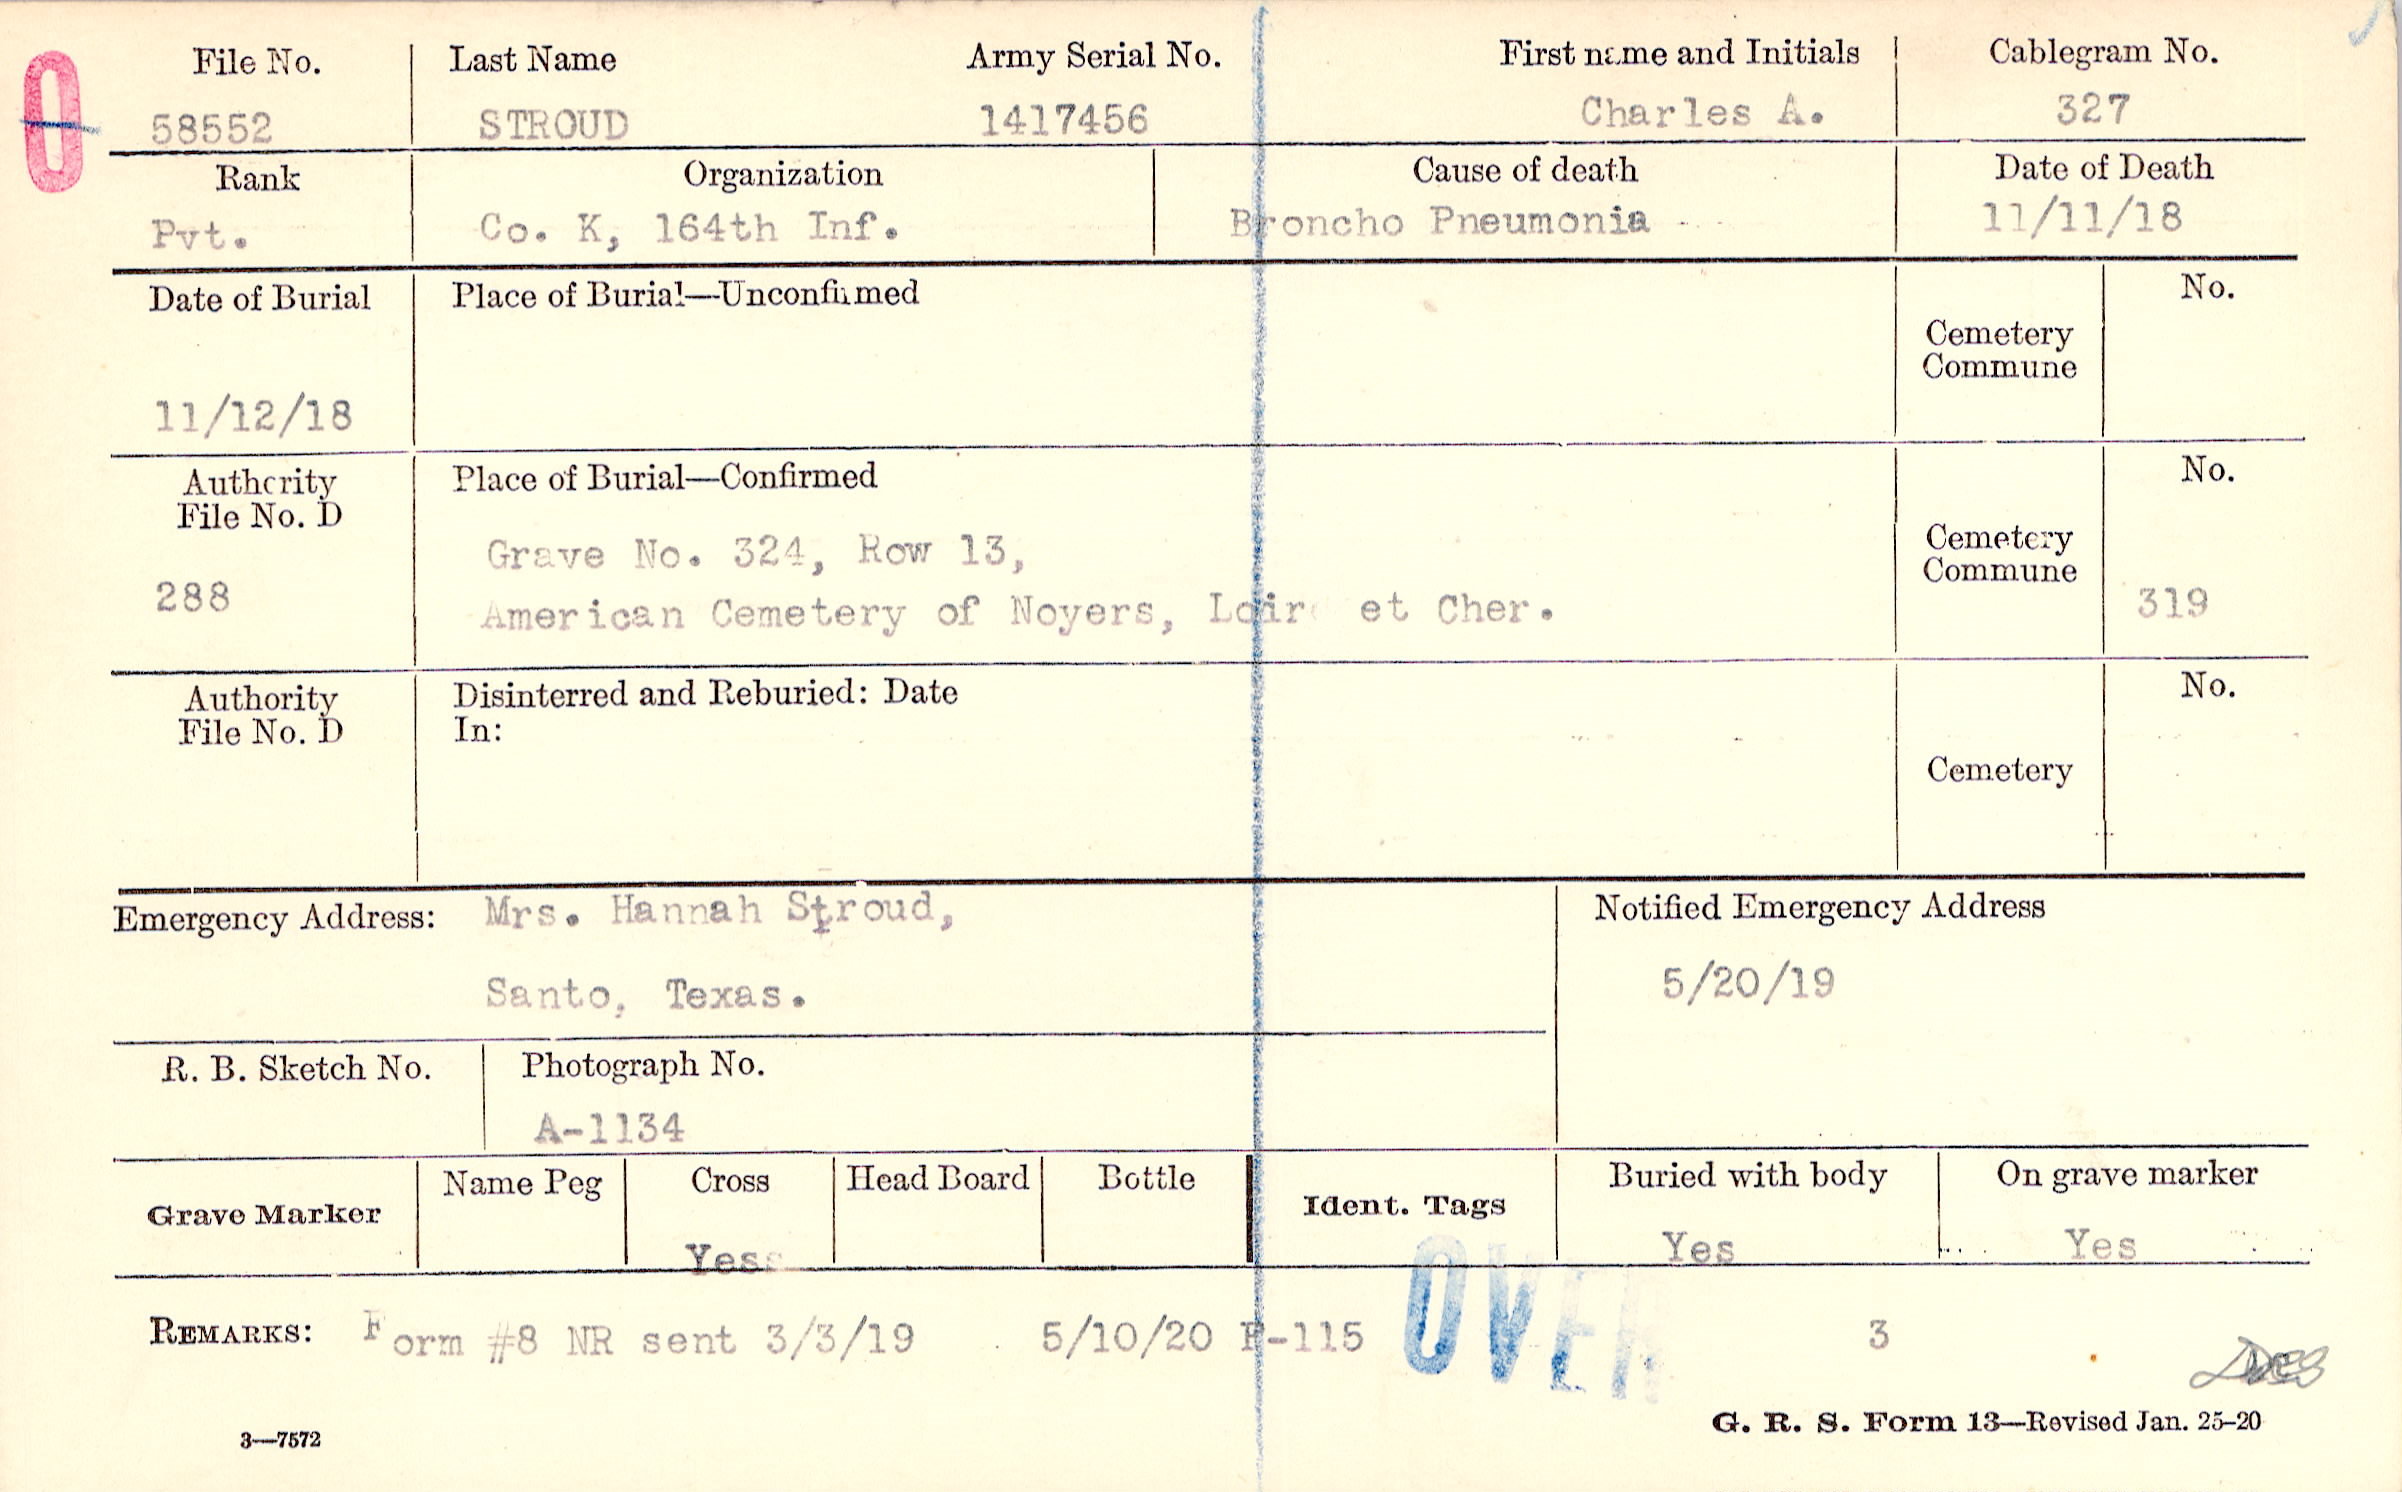 O
File No. Last Name Army Serial No. First name and Initials Cablegram No.
58552 STROUD 1417456 Charles A. 327
Rank Organization Cause of death Date of Death
Pvt. Co. K, 164th Inf. Broncho Pneumonia 11/11/18
Date of Burial Place of Burial—Unconfirmed No.
Cemetery
Commune
11/12/18
Authority Place of Burial—Confirmed No.
File No. D
Grave No. 324, Row 13, Cemetery
Commune
288 American Cemetery of Noyers, Loire et Cher. 319
Authority Disinterred and Reburied: Date No.
File No. D In:
Cemetery
Emergency Address: Mrs. Hannah Stroud, Notified Emergency Address
Santo, Texas. 5/20/19
R. B. Sketch No. Photograph No.
A-1134
Grave Marker Name Peg Cross Head Board Bottle Ident. Tags Buried with body On grave marker
Yess Yes Yes
REMARKS: Form #8 NR sent 3/3/19 5/10/20 F-115 OVER 3
3—7572 G. R. S. Form 13—Revised Jan. 25-20